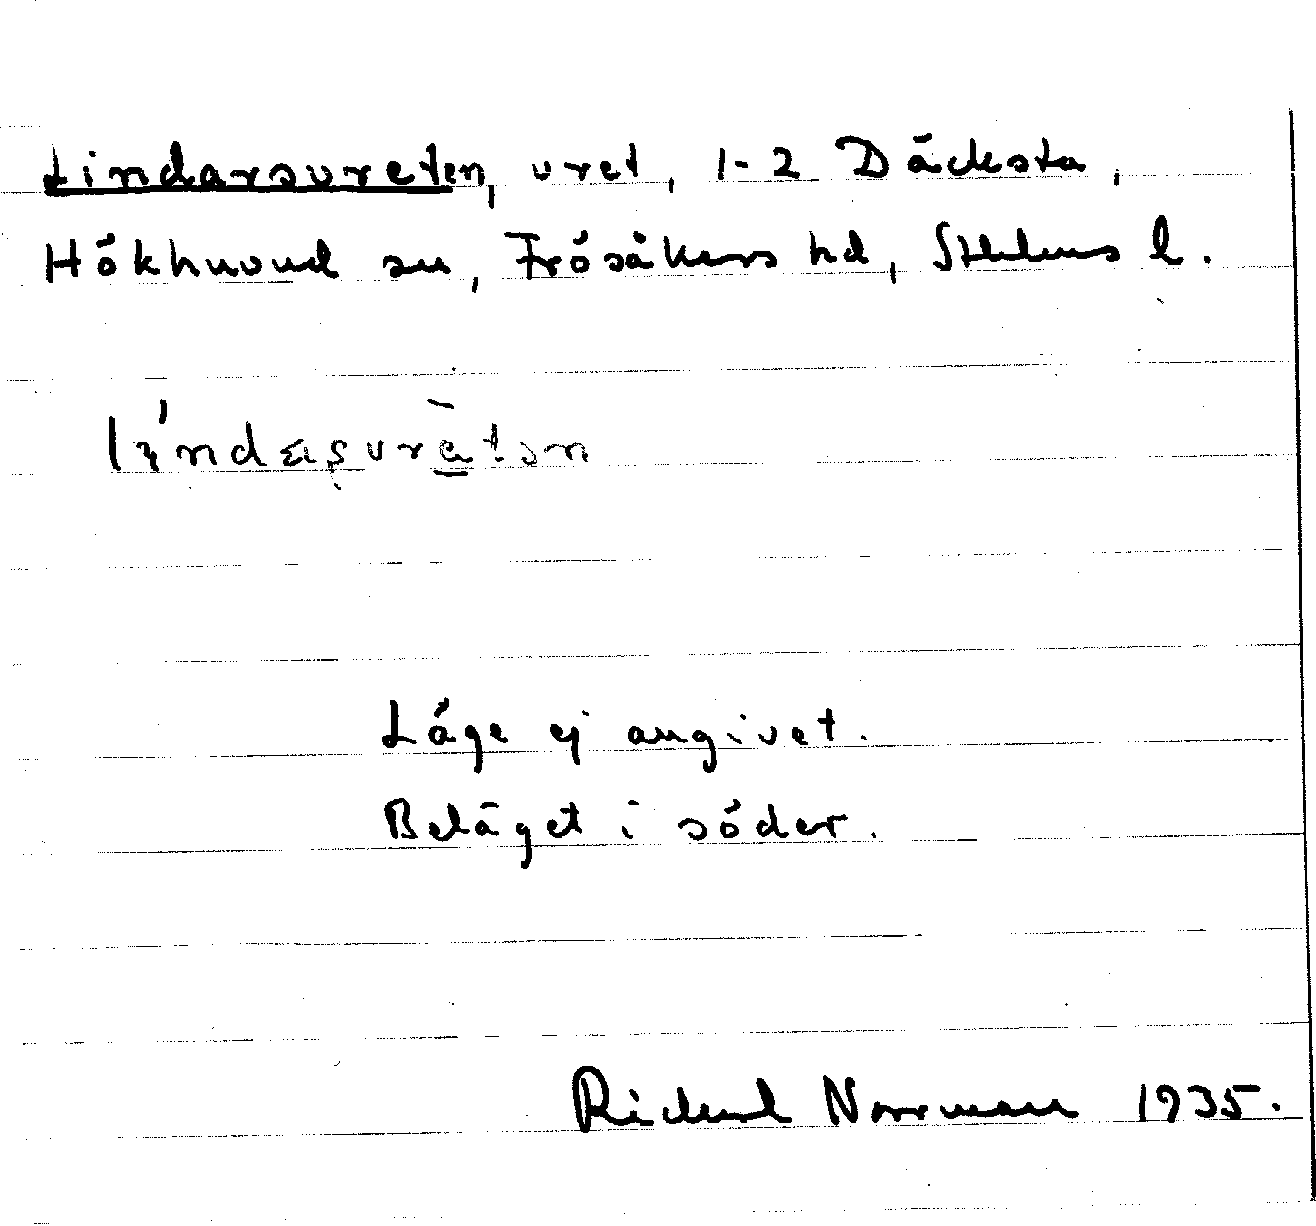 Lindarsvreten, vret, 1-2 Däcksta,
Hökhuvud sn, Frösåkers hd, Sthlms l.
Läge ej angivet.
Beläget i söder.
Rickard Norrman 1935.